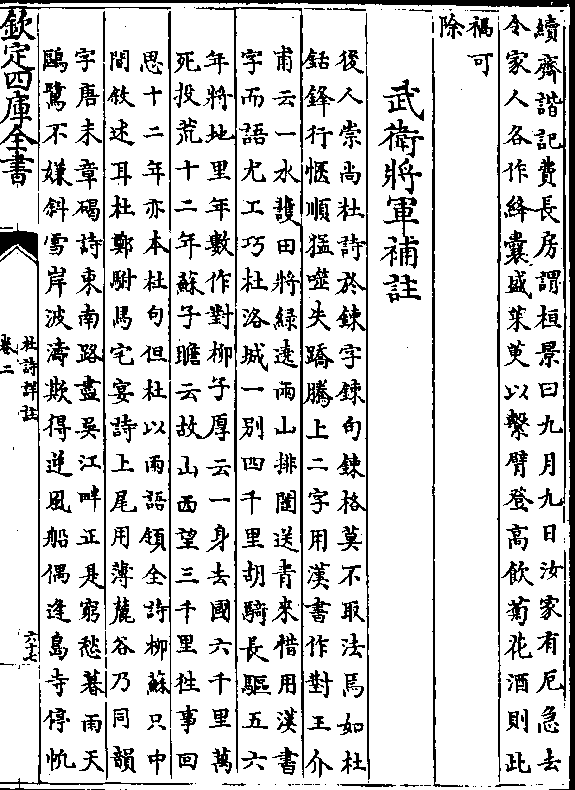 續齊諧記費長房謂桓景曰九月九日汝家有厄急去
令家人各作絳囊盛茱萸以繫臂登高飲菊花酒則此
禍可
除
武衛將軍補註
後人崇尚杜詩於鍊字鍊句鍊格莫不取法焉如杜
銛鋒行愜順猛噬失蹻騰上二字用漢書作對王介
甫云一水護田將綠遶兩山排闥送青來惜用漢書
字而語尤工巧杜洛城一別四千里胡騎長驅五六
年將地里年數作對柳子厚云一身去國六千里萬
死投荒十二年蘇子瞻云故山西望三千里往事回
思十二年亦本杜句但杜以兩語領全詩柳蘇只中
間敘述耳杜鄭駙馬宅宴詩上尾用薄麓谷乃同韻
字唐末章碣詩東南路盡吳江畔正是窮愁暮雨天
鷗鷺不嫌斜雪岸波濤欺得逆風船偶逢島寺停帆
欽定四庫全書
杜詩詳註
卷二
六十七